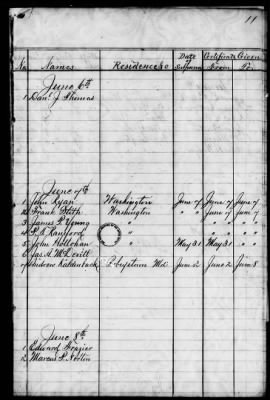 11
No. Names Residences Date Certificate Given
From To
June 6th
1 Danl. J. Thomas
June 7th
1 John Ryan Washington June 7 June 7 June 7
2 Frank Washington " " June 7 June 7
3 James P. Young " " " " " " "
4 "
5 John Hollohan " May 31 May 31 " "
6 Jas. A. McDevitt " " " " " "
7 Andrew Kaldenback Md June 2 June 2 June 8
June 8th
1 Edward Frazier
2 Marcus P. Norton